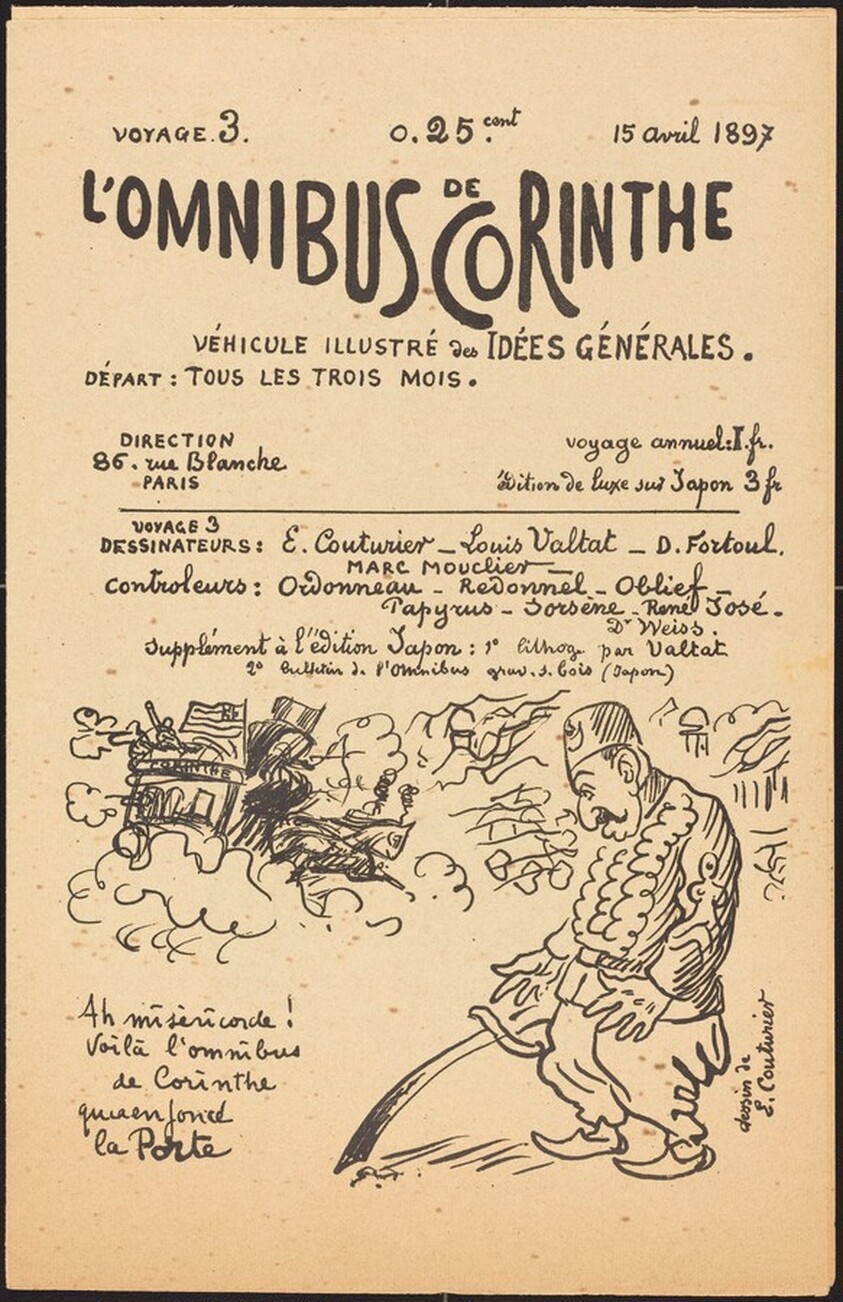 VOYAGE.3.
0.25.cent
15 avril 1897
L'OMNIBUS DE CORINTHE
VÉHICULE ILLUSTRÉ des IDÉES GÉNÉRALES.
DÉPART : TOUS LES TROIS MOIS.
DIRECTION
86. rue Blanche
PARIS
voyage annuel: I.fr.
Édition de luxe sur Japon 3 fr
VOYAGE 3
DESSINATEURS : E. Couturier _ Louis Valtat _ D. Fortoul.
MARC MOUCLIER _
Controleurs : Ordonneau _ Redonnel _ Oblief _
Papyrus _ Sorsène _ René José.
Dr Weiss.
Supplément à l'édition Japon : 1° lithog. par Valtat
2° bulletin de l'Omnibus grav. s. bois (Japon)
CORINTHE
Ah miséricorde !
Voilà l'omnibus
de Corinthe
qui a enfoncé
la Porte
dessin de
E. Couturier